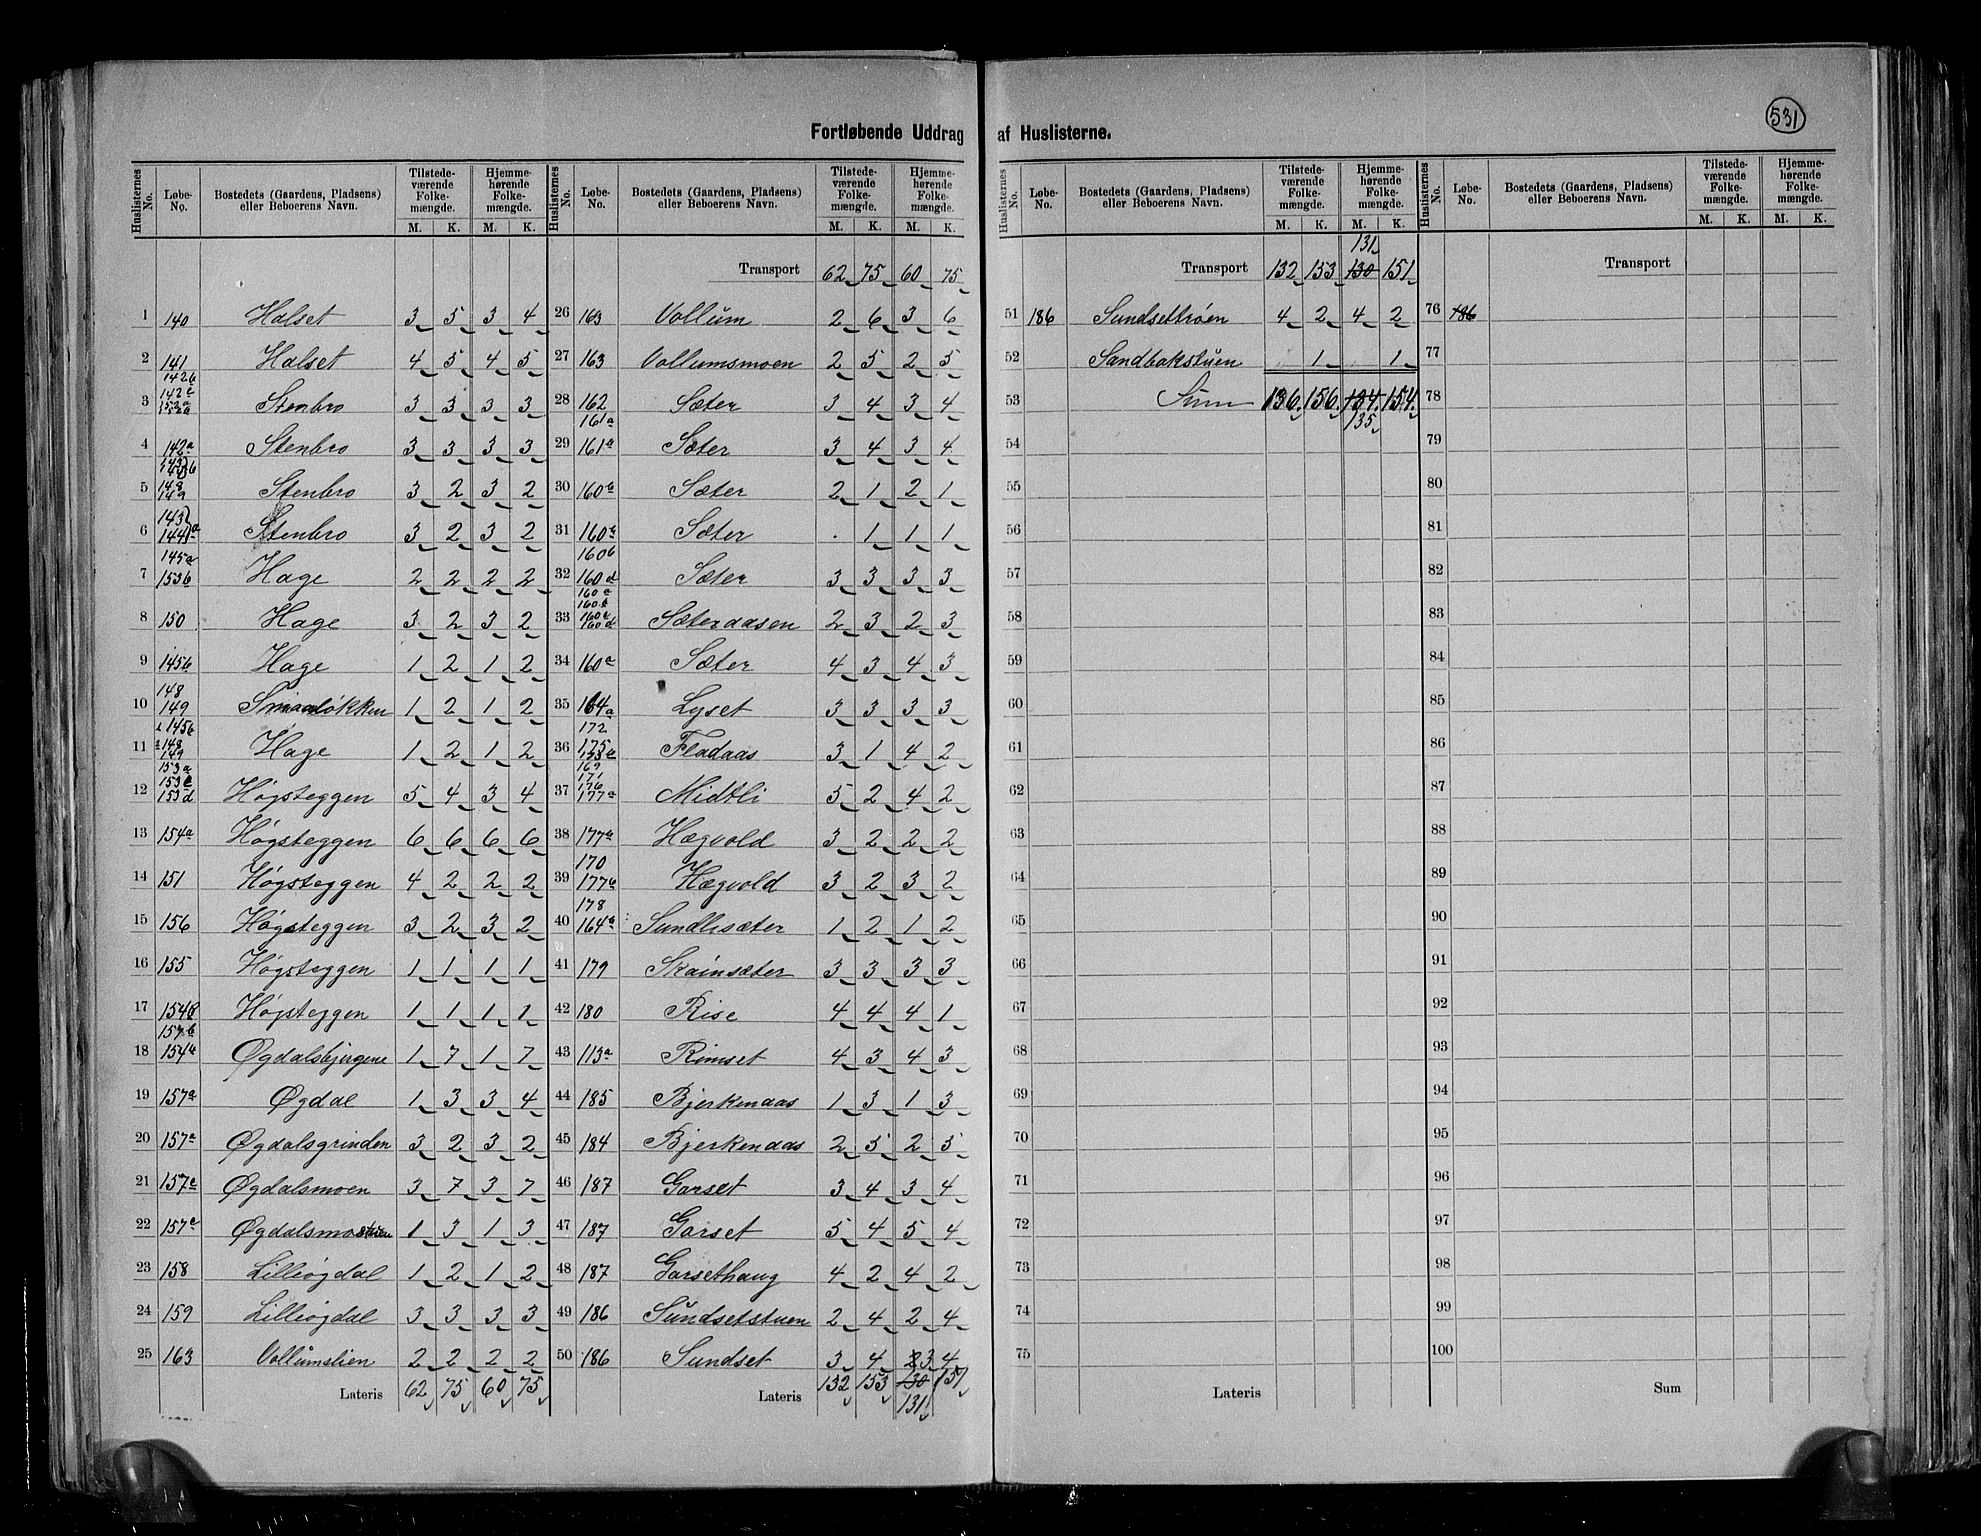 531
Fortløbende Uddrag af Huslisterne.
Huslisternes No. | Løbe-No. | Bostedets (Gaardens, Pladsens) eller Beboerens Navn. | Tilstedeværende Folkemængde. M. K. | Hjemmehørende Folkemængde. M. K.
1 | 140 | Halset | 3 | 5 | 3 | 4
2 | 141 | Halset | 4 | 5 | 4 | 5
3 | 142b 142c 152a 152b | Stenbro | 3 | 3 | 3 | 3
4 | 142a | Stenbro | 3 | 3 | 3 | 3
5 | 148 149 | Stenbro | 3 | 2 | 3 | 2
6 | 143 144 a | Stenbro | 3 | 2 | 3 | 2
7 | 145a 153b | Hage | 2 | 2 | 2 | 2
8 | 150 | Hage | 3 | 2 | 3 | 2
9 | 145b | Hage | 1 | 2 | 1 | 2
10 | 148 149 | Smaaløkken | 1 | 2 | 1 | 2
11 | 145b 148 149 | Hage | 1 | 2 | 1 | 2
12 | 153a 153c 153d | Høgsteggen | 5 | 4 | 3 | 4
13 | 154a | Høgsteggen | 6 | 6 | 6 | 6
14 | 151 | Høgsteggen | 4 | 2 | 2 | 2
15 | 156 | Høgsteggen | 3 | 2 | 3 | 2
16 | 155 | Høgsteggen | 1 | 1 | 1 | 1
17 | 154b | Høgsteggen | 1 | 1 | 1 | 1
18 | 157b 154a | Øgdalsbjergene | 1 | 7 | 1 | 7
19 | 157a | Øgdal | 1 | 3 | 3 | 4
20 | 157a | Øgdalsgrinden | 3 | 2 | 3 | 2
21 | 157c | Øgdalsmoen | 3 | 7 | 3 | 7
22 | 157c | Øgdalsmostuen | 1 | 3 | 1 | 3
23 | 158 | Lilleøgdal | 1 | 2 | 1 | 2
24 | 159 | Lilleøgdal | 3 | 3 | 3 | 3
25 | 163 | Vollumslien | 2 | 2 | 2 | 2
Lateris | 62 | 75 | 60 | 75
Huslisternes No. | Løbe-No. | Bostedets (Gaardens, Pladsens) eller Beboerens Navn. | Tilstedeværende Folkemængde. M. K. | Hjemmehørende Folkemængde. M. K.
Transport | 62 | 75 | 60 | 75
26 | 163 | Vollum | 2 | 6 | 3 | 6
27 | 163 | Vollumsmoen | 2 | 5 | 2 | 5
28 | 162 161a | Sæter | 3 | 4 | 3 | 4
29 | 161a | Sæter | 3 | 4 | 3 | 4
30 | 160b | Sæter | 2 | 1 | 2 | 1
31 | 160c | Sæter | . | 1 | 1 | 1
32 | 160b 160d | Sæter | 3 | 3 | 3 | 3
33 | 160a 160b 160c 160d | Sæteraasen | 2 | 3 | 2 | 3
34 | 160a | Sæter | 4 | 3 | 4 | 3
35 | 164a | Lyset | 3 | 3 | 3 | 3
36 | 172 175 | Fladaas | 3 | 1 | 4 | 2
37 | 169 171 176 177a | Midtli | 5 | 2 | 4 | 2
38 | 177a | Hægvold | 3 | 2 | 2 | 2
39 | 170 177b | Hægvold | 3 | 2 | 3 | 2
40 | 178 164a | Sundlisæter | 1 | 2 | 1 | 2
41 | 179 | Skainsæter | 3 | 3 | 3 | 3
42 | 180 | Rise | 4 | 4 | 4 | 1
43 | 113a | Rimset | 4 | 3 | 4 | 3
44 | 185 | Bjerkenaas | 1 | 3 | 1 | 3
45 | 184 | Bjerkenaas | 2 | 5 | 2 | 5
46 | 187 | Garset | 3 | 4 | 3 | 4
47 | 187 | Garset | 5 | 4 | 5 | 4
48 | 187 | Garsethaug | 4 | 2 | 4 | 2
49 | 186 | Sundsetstuen | 2 | 4 | 2 | 4
50 | 186 | Sundset | 3 | 4 | 2 3 | 4
Lateris | 132 | 153 | 130 131 | 151
Huslisternes No. | Løbe-No. | Bostedets (Gaardens, Pladsens) eller Beboerens Navn. | Tilstedeværende Folkemængde. M. K. | Hjemmehørende Folkemængde. M. K.
Transport | 132 | 153 | 131 130 | 151
51 | 186 | Sundsettrøen | 4 | 2 | 4 | 2
52 | Sandbakstuen | 1 | 1
53 | Sum | 136 | 156 | 134 135 | 154
54
55
56
57
58
59
60
61
62
63
64
65
66
67
68
69
70
71
72
73
74
75
Lateris
Huslisternes No. | Løbe-No. | Bostedets (Gaardens, Pladsens) eller Beboerens Navn. | Tilstedeværende Folkemængde. M. K. | Hjemmehørende Folkemængde. M. K.
Transport
76 | 186
77
78
79
80
81
82
83
84
85
86
87
88
89
90
91
92
93
94
95
96
97
98
99
100
Sum